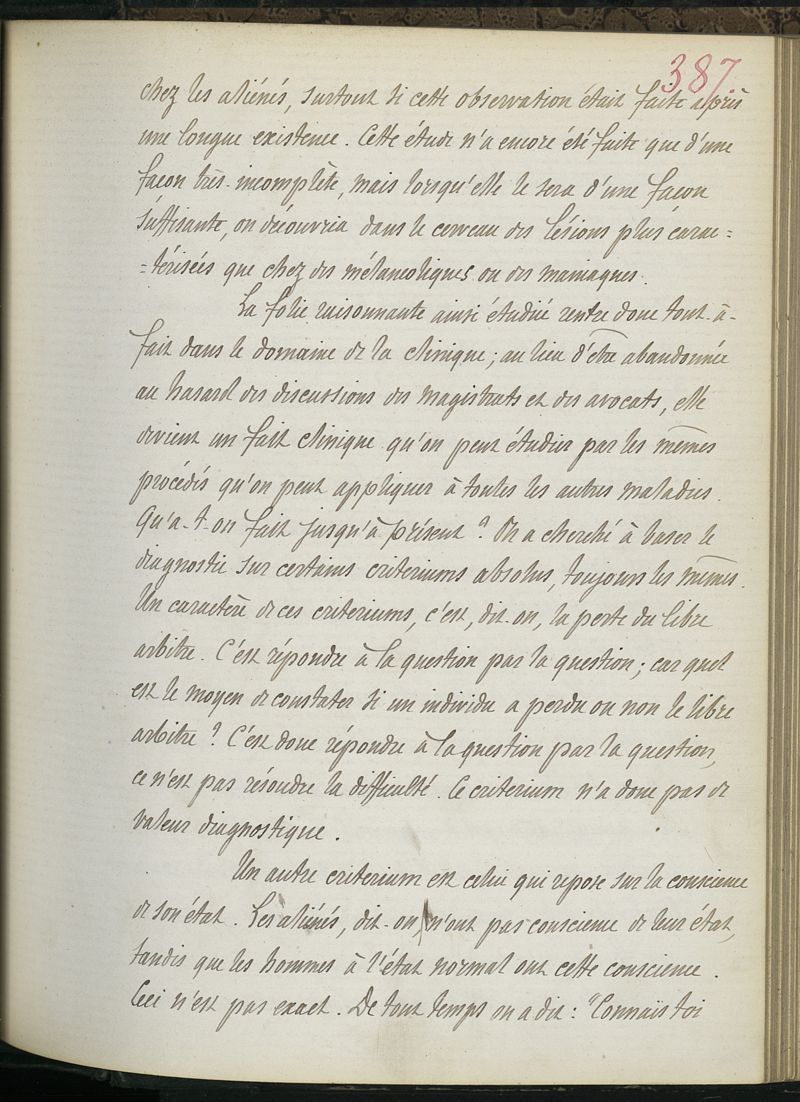 387.
chez les aliénés, surtout si cette observation était faite après
une longue existence. Cette étude n'a encore été faite que d'une
façon très-incomplète, mais lorsqu'elle le sera d'une façon
suffisante, on découvrira dans le cerveau des lésions plus carac=
=térisées que chez des mélancoliques ou des maniaques.
La folie raisonnante ainsi étudiée rentre donc tout-à-
fait dans le domaine de la clinique; au lieu d'être abandonnée
au hasard des discussions des magistrats et des avocats, elle
devient un fait clinique qu'on peut étudier par les mêmes
procédés qu'on peut appliquer à toutes les autres maladies.
Qu'a-t-on fait jusqu'à présent? On a cherché à baser le
diagnostic sur certains criteriums absolus, toujours les mêmes.
Un caractère de ces criteriums, c'est, dit-on, la perte du libre
arbitre. C'est répondre à la question par la question; car quel
est le moyen de constater si un individu a perdu ou non le libre
arbitre? C'est donc répondre à la question par la question,
ce n'est pas résoudre la difficulté. Ce criterium n'a donc pas de
valeur diagnostique.
Un autre criterium est celui qui repose sur la conscience
de son état. Les aliénés, dit-on, n'ont pas conscience de leur état,
tandis que les hommes à l'état normal ont cette conscience.
Ceci n'est pas exact. De tout temps on a dit: "Connais toi